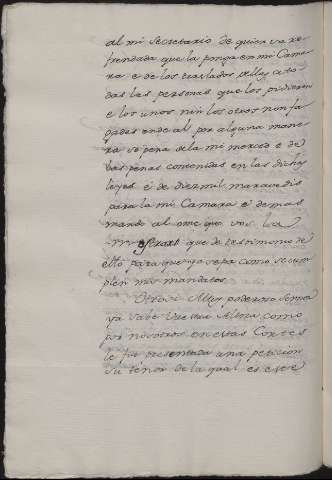 al mi Secretario de quien va re
frendada que la ponga en mi Cama
ra e de los traslados dellas a to
das las personas que los pidieren
e los unos nin los otros non fa
gades ende al por alguna mane
ra so pena de la mi merced e de
las penas contenidas en las dichas
leyes e de diez mil maravedis
para la mi Camara e demas
mando al ome que vos la
mostrare que de testimonio de
ello para que yo sepa como se cum
plen mis mandatos
Otrosi Alto y poderoso Señor
ya sabe Vuestra Alteza como
por nosotros en estas Cortes
le fue presentada una peticion
su tenor de la qual es este